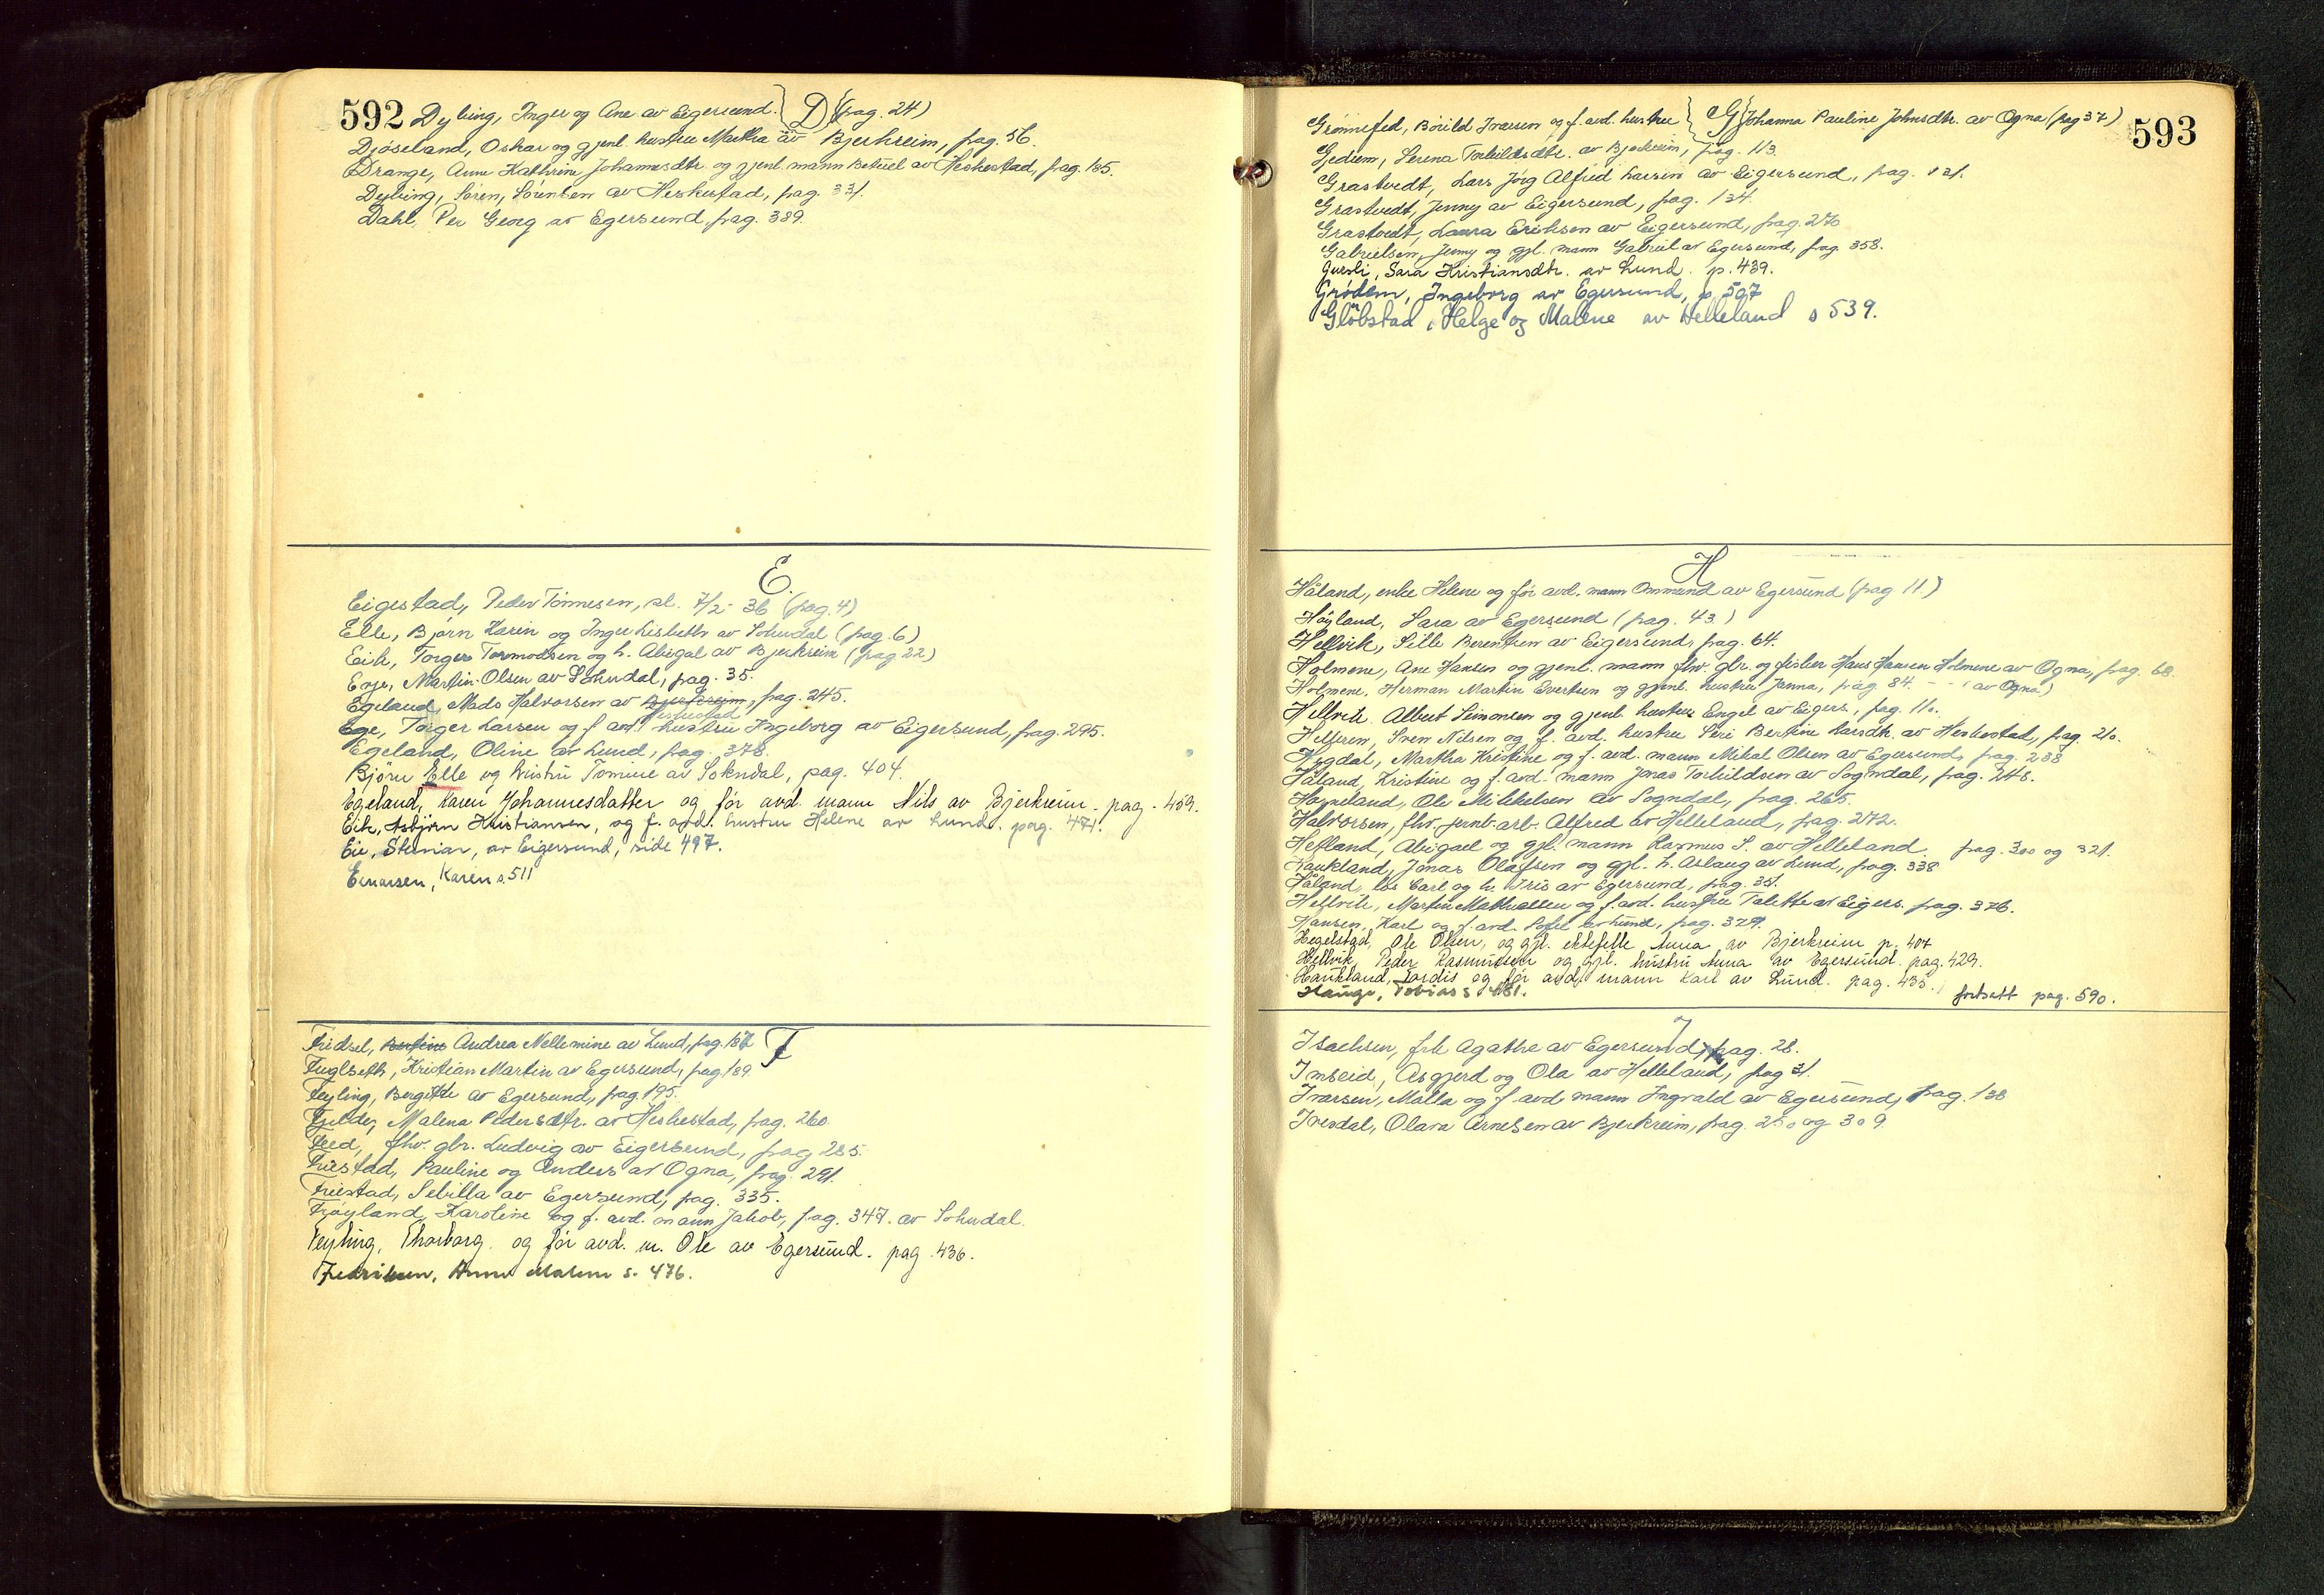 592 Dybing, Inger og Ane av Eigersund. } D { (pag. 24)
Djöseland, Oskar og gjenl. hustru Martha av Bjerkreim, pag. 56.
Drange, Anne Kathrine Johannesdtr. og gjenl. mann Betuel av Heskestad, pag. 185.
Dybing, Sören, Sörensen av Heskestad, pag. 331.
Dahl, Per Georg av Egersund, pag. 389.
E.
Eigestad, Peder Tönnesen, sl. 7/2-36 (pag. 4)
Elle, Bjørn Karin og Inger Lisbeth av Sokndal (pag. 6)
Eik, Torger Tormodsen og h. Abigal av Bjerkreim (pag 22)
Erje, Martin Olsen av Sokndal, pag. 35.
Egeland, Mads Halvorsen av Bjerkreim, pag. 245.
Heskestad
Ege, Torger Larsen og f. avd. hustru Ingeborg av Eigersund, pag. 295.
Egeland, Oline av Lund, pag. 378.
Björn Elle og hustru Tomine av Sokndal, pag. 404.
Egeland, Karen Johannesdatter og før avd. mann Nils av Bjerkreim - pag - 459.
Eik, Asbjörn Kristiansen, og f. avd. hustru Helene av Lund. pag. 471.
Eie, Steinar, av Eigersund, side 497.
Einarsen, Karen s. 511
Fridsel, Bertine Andrea Nellemine av Lund, pag. 187 F
Fuglseth, Kristian Martin av Egersund, pag 189.
Feyling, Bergitte av Egersund, pag. 195.
Fjelde, Malena Pedersdtr. av Heskestad, pag. 260.
Feed, fhv. gbr. Ludvig av Eigersund, pag 285.
Friestad, Pauline og Anders av Ogna, pag. 291.
Friestad, Sebilla av Egersund, pag. 335.
Fröyland, Karoline og f. avd. mann Jakob, pag. 347. av Sokndal.
Feyling, Thorborg. og før avd. m. Ole av Egersund. pag. 436.
Fredriksen, Anne Malene s. 476.
Grønnefed, Bórild Ivarsen og f. avd. hustru } G { Johanna Pauline Johnsdtr. av Ogna (pag 37) 593
Gjedrem, Serena Torkildsdtr. av Bjerkreim, pag. 113.
Grastvedt, Lars Jörg Alfred Larsen av Eigersund, pag. 121.
Grastvedt, Jenny av Eigersund, pag. 134.
Grastvedt, Laura Eriksen av Eigersund, pag. 270
Gabrielsen, Jenny og gjl. mann Gabriel av Egersund, pag. 358.
Gursli, Sara Kristiansdtr. av Lund. p. 439.
Grödem, Ingeborg av Egersund, p. 507
Glöbstad, Helge og Malene av Helleland s 539.
H
Håland, enke Helene og før avd. mann Ommund av Egersund (pag 11.)
Höyland, Sara av Egersund (pag. 43)
Hellvik, Sille Berentsen av Eigersund, pag. 64.
Holmene, Ane Hansen og gjenl. mann fhv. gbr. og fisker Hans Hansen Holmene av Ogna, pag. 68.
Holmene, Herman Martin Evertsen og gjenl. hustru Janna, pag. 84. - - (av Ogna)
Hellvik, Albert Simonsen og gjenl. hustru Engel av Eigers., pag. 110.
Helleren, Sven Nilsen og f. avd. hustru Siri Bertine Larsdtr. av Heskestad, pag. 210.
Hegdal, Martha Kristine og f. avd. mann Mikal Olsen av Egersund, pag. 238
Håland, Kristine og f. avd. mann Jonas Torkildsen av Sogndal, pag. 248.
Hogneland, Ole Mikkelsen av Sogndal, pag. 265.
Halvorsen, fhv. jernb. arb. Alfred av Helleland, pag. 272.
Hefland, Abigael og gjl. mann Rasmus S. av Helleland pag. 300 og 321.
Haukland, Jonas Olafsen og gjl. h. Aslaug av Lund, pag. 338
Håland, los Carl og h. Iris av Egersund, pag. 351.
Hellvik, Martin Mathiassen og f. avd. hustru Talette av Eigers. pag. 376.
Hansen, Karl og f. avd. Sofie av Lund, pag. 379.
Hegelstad, Ole Olsen, og gjl. ektefelle Anna av Bjerkreim p. 407
Hellvik, Peder Rasmussen og gjl. hustru Anna av Egersund. pag. 429.
Haukland, Tordis og før avd. mann Karl av Lund. pag. 435.
Hauge, Tobias s 481. fortsatt pag. 590.
I
Isachsen, frk Agathe av Egersund, pag. 28.
Imseid, Asgjerd og Ola av Helleland, pag 31.
Ivarsen, Malla og f. avd. mann Ingvald av Egersund, pag. 138
Ivesdal, Olava Arnesen av Bjerkreim, pag. 250 og 309.